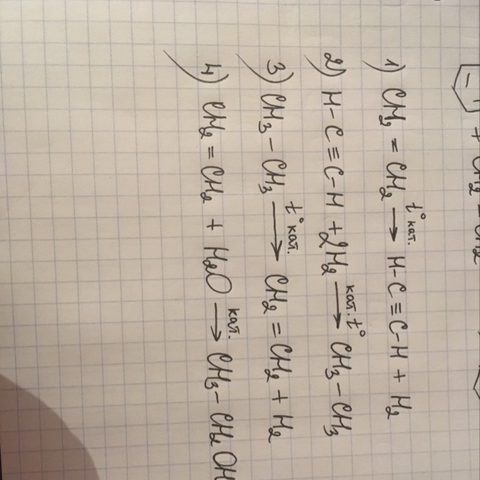 + CH₂ = CH₂
1) CH₂ = CH₂ t° кат. → H-C≡C-H + H₂
2) H-C≡C-H + 2H₂ кат. t° → CH₃-CH₃
3) CH₃-CH₃ t° кат. → CH₂=CH₂ + H₂
4) CH₂=CH₂ + H₂O кат. → CH₃-CH₂OH